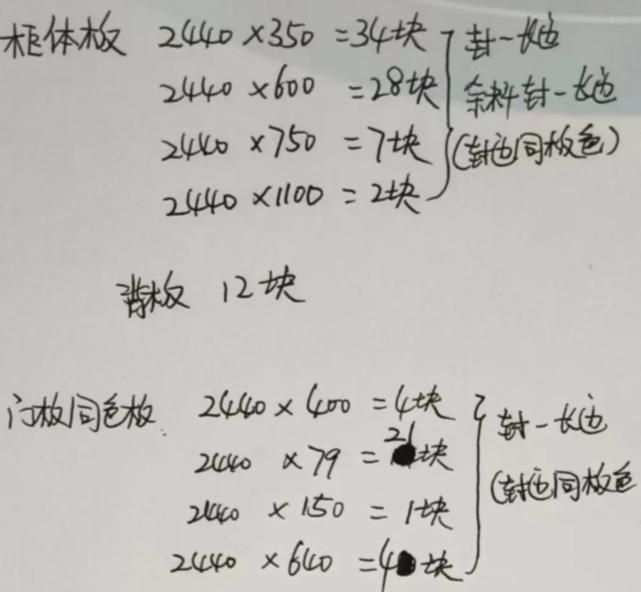 柜体板 2440×350=34块 封一长边
2440×600=28块 余料封一长边
2440×750=7块 (封边同板色)
2440×1100=2块
背板 12块
门板同色板. 2440×400=4块 封一长边
2440×79=21块 (封边同板色
2440×150=1块
2440×640=4块